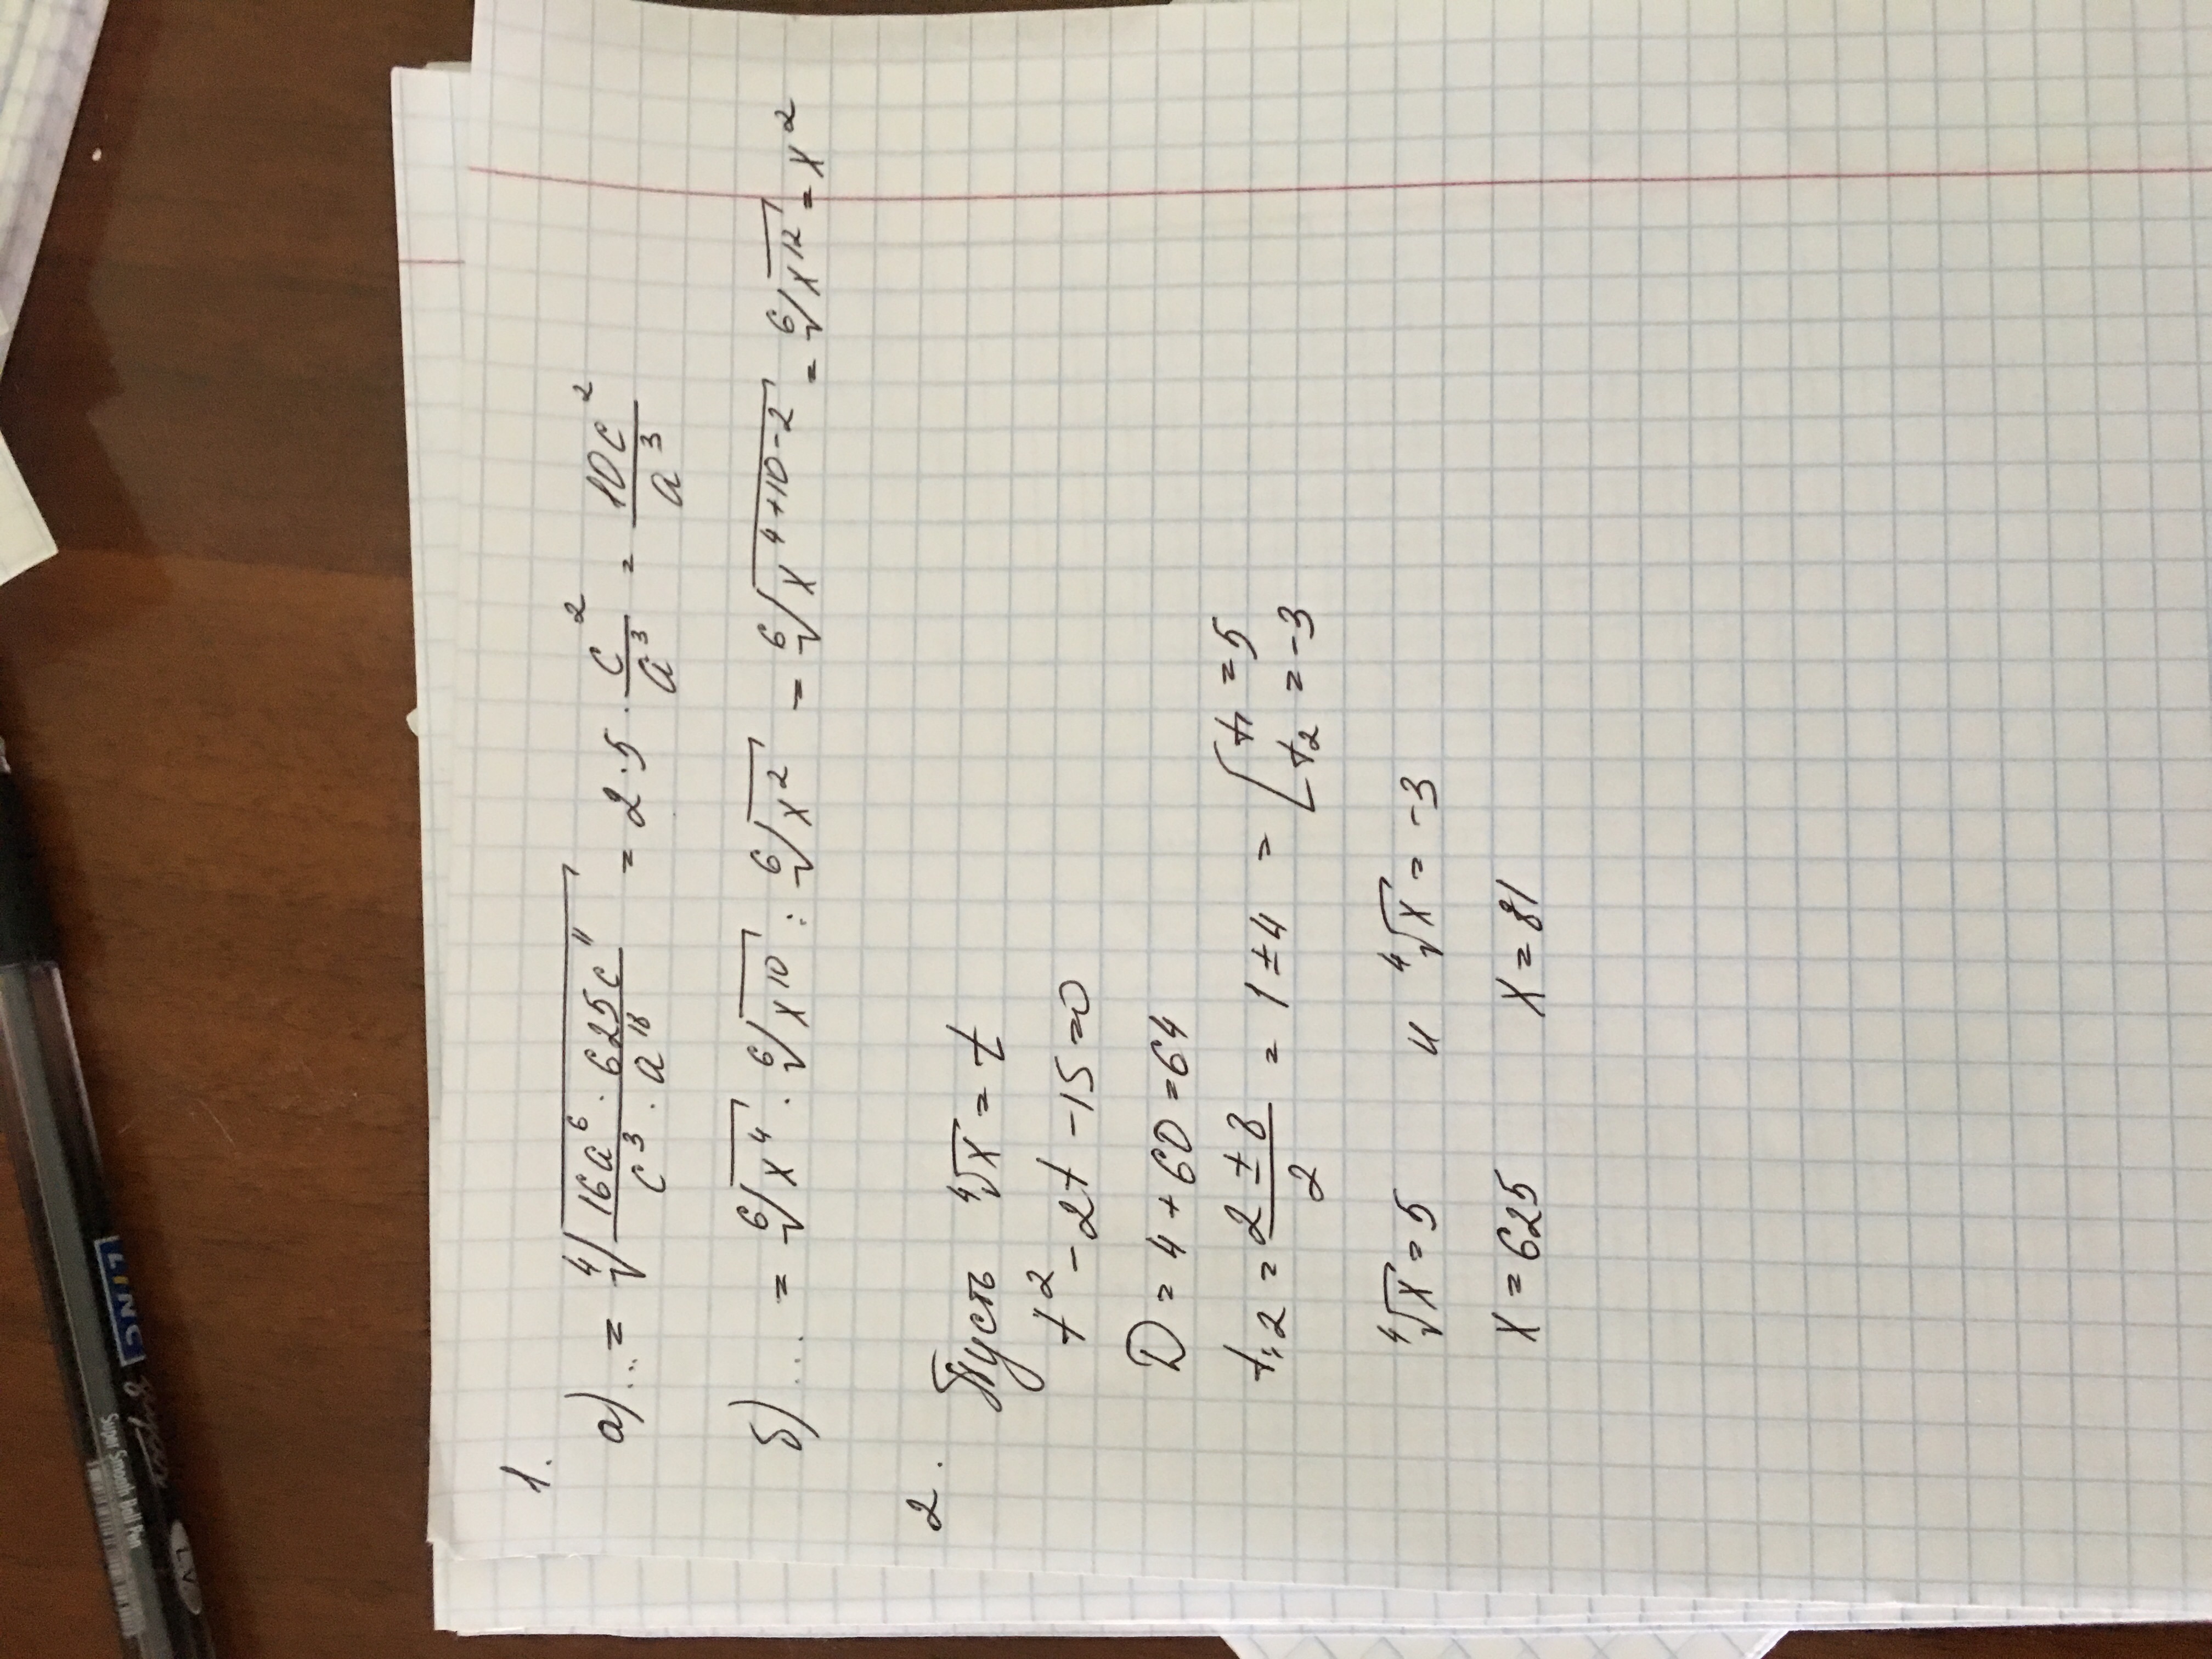 1.
а) ... = ⁴√(16a⁶ · 625c¹¹ / c³ · a¹⁸) = 2·5 · c²/a³ = 10c²/a³
б) ... = ⁶√x⁴ · ⁶√x¹⁰ : ⁶√x² = ⁶√x⁴⁺¹⁰⁻² = ⁶√x¹² = x²
2. Пусть ⁴√x = t
t² - 2t - 15 = 0
D = 4 + 60 = 64
t₁,₂ = (2 ± 8)/2 = 1 ± 4 = [t₁ = 5
t₂ = -3
⁴√x = 5 и ⁴√x = -3
x = 625 x = 81
LINC
Super Smooth Ball Pen